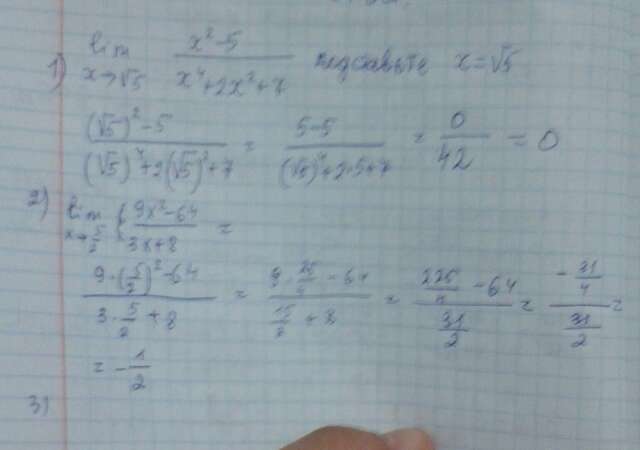 1) lim x→√5 (x²-5)/(x⁴+2x²+7) подставьте x=√5
((√5)²-5)/((√5)⁴+2(√5)²+7) = (5-5)/((√5)⁴+2·5+7) = 0/42 = 0
2) lim x→5/2 (9x²-64)/(3x+8) =
(9·(5/2)²-64)/(3·5/2+8) = (9·25/4-64)/(15/2+8) = (225/4-64)/(31/2) = (-31/4)/(31/2) =
= -1/2
3)